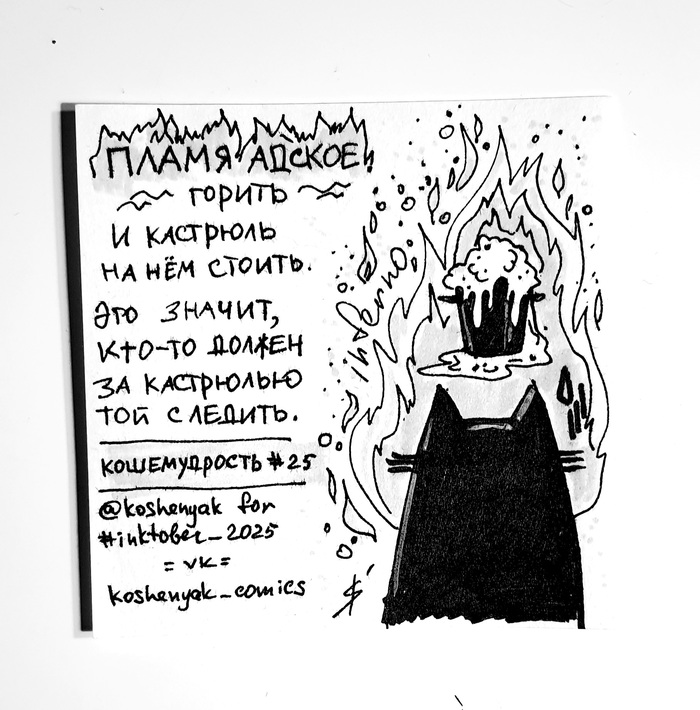 ПЛАМЯ АДСКОЕ
ГОРИТЬ
И КАСТРЮЛЬ
НА НЁМ СТОИТЬ.
ЭТО ЗНАЧИТ,
КТО-ТО ДОЛЖЕН
ЗА КАСТРЮЛЬЮ
ТОЙ СЛЕДИТЬ.
КОШЕМУДРОСТЬ #25
@koshenyak for
#inktober_2025
= VK =
koshenyak_comics
inferno